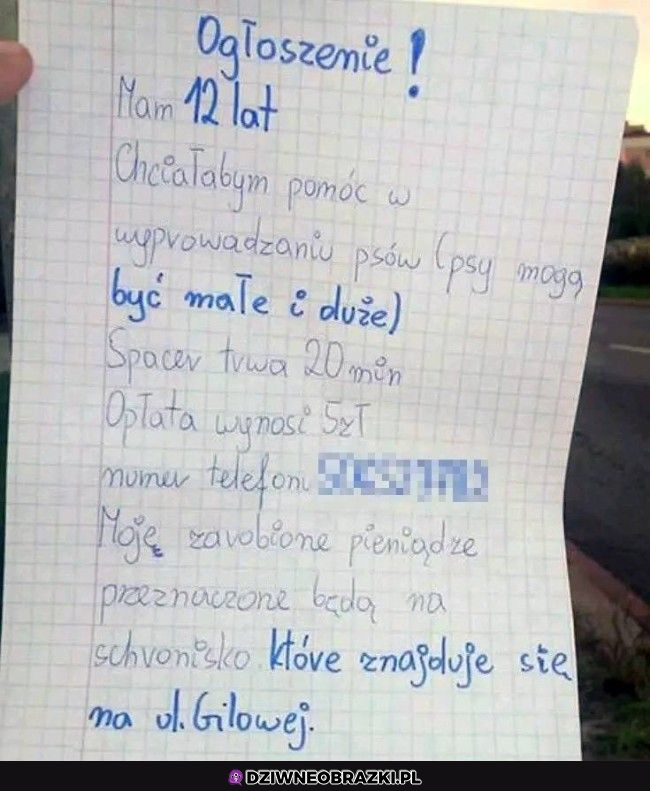 Ogłoszenie!
Mam 12 lat
Chciałabym pomóc w
wyprowadzaniu psów (psy mogą
być małe i duże)
Spacer trwa 20 min
Opłata wynosi 5zł
numer telefonu
Moję zarobione pieniądze
przeznaczone będą na
schronisko które znajduje się
na ul. Gilowej.
DZIWNEOBRAZKI.PL